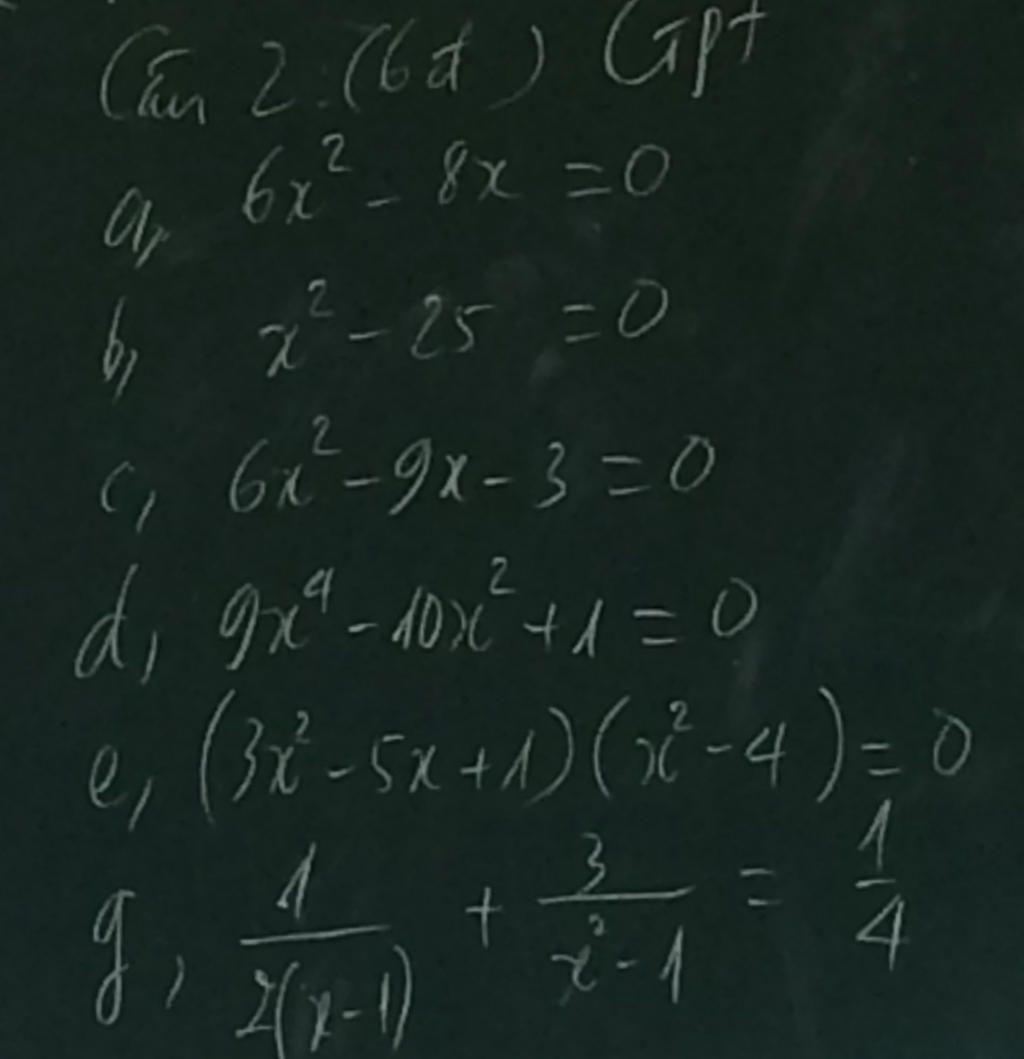 Câu 2: (6đ) Gpt
a, 6x² - 8x = 0
b, x² - 25 = 0
c, 6x² - 9x - 3 = 0
d, 9x⁴ - 10x² + 1 = 0
e, (3x² - 5x + 1)(x² - 4) = 0
g, 1/2(x-1) + 3/x²-1 = 1/4